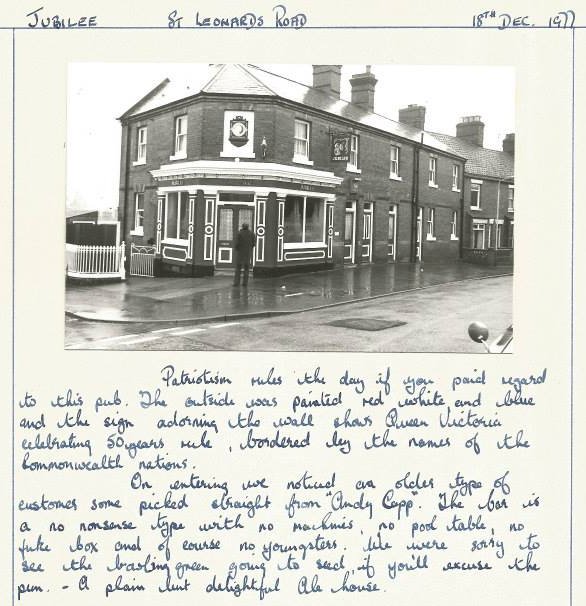 JUBILEE ST LEONARDS ROAD 18TH DEC. 1977
JUBILEE
Patriotism rules the day if you paid regard
to this pub. The outside was painted red white and blue
and the sign adorning the wall shows Queen Victoria
celebrating 50 years rule, bordered by the names of the
Commonwealth nations.
On entering we noticed an older type of
customer some picked straight from "Andy Capp". The bar is
a no nonsense type with no machines, no pool table, no
juke box and of course no youngsters. We were sorry to
see the bowling green going to seed, if you'll excuse the
pun. - A plain but delightful Ale house.